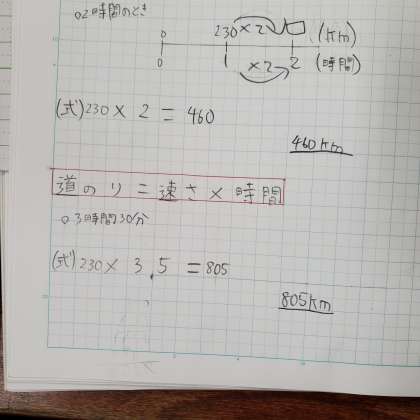 ○2時間のとき
0 230 ×2 □ (km)
0 1 ×2 2 (時間)
(式)230 × 2 = 460
460km
道のり = 速さ × 時間
○3時間30分
(式)230 × 3.5 = 805
805km